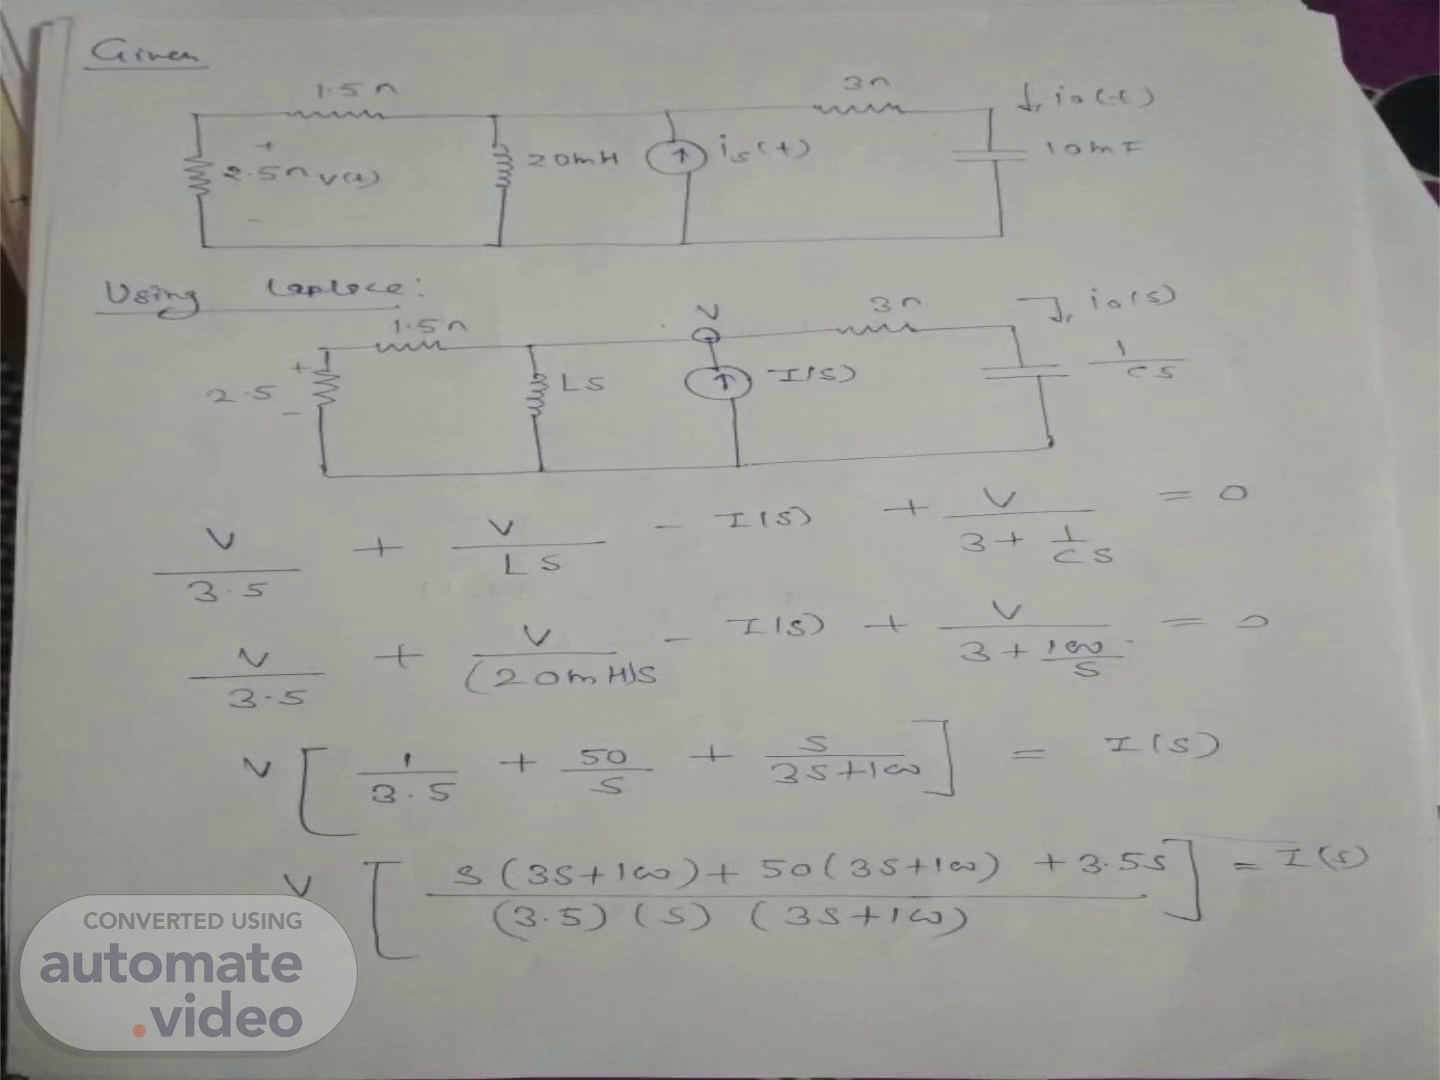 Given
1.5Ω
3Ω
io(t)
2.5Ω
+
v(t)
-
20mH
is(t)
10mF
Using Laplace:
1.5Ω
V
3Ω
io(s)
2.5
+
-
LS
I(S)
1/CS
V/3.5 + V/LS - I(S) + V/(3 + 1/CS) = 0
V/3.5 + V/(20mH)S - I(S) + V/(3 + 100/S) = 0
V [ 1/3.5 + 50/S + S/(3S+100) ] = I(S)
V [ (S(3S+100) + 50(3S+100) + 3.5S) / ((3.5)(S)(3S+100)) ] = I(S)
CONVERTED USING
automate
.video